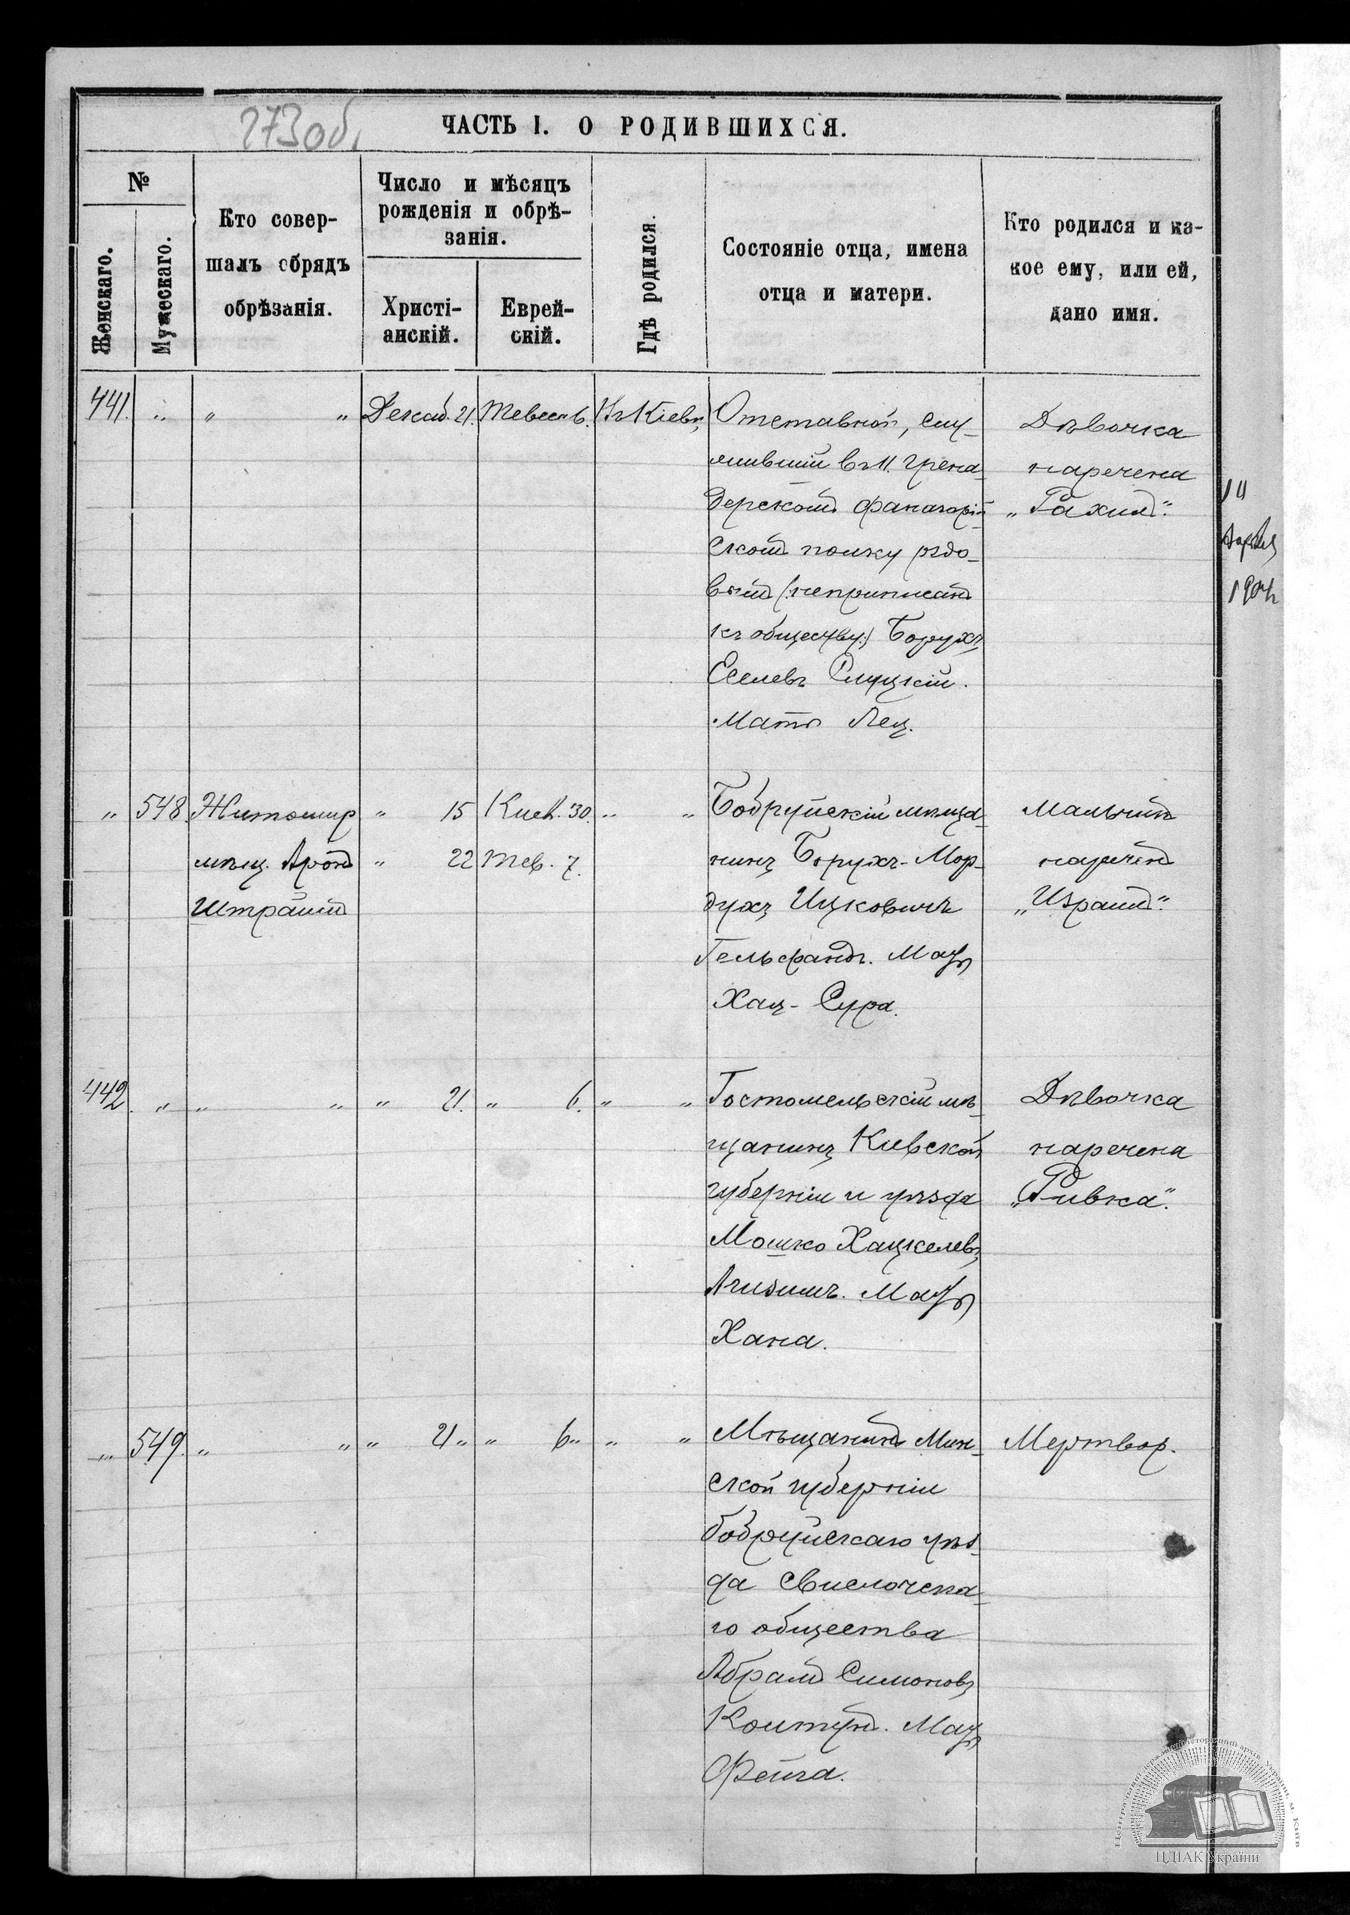 273 об.
ЧАСТЬ I. О РОДИВШИХСЯ.
№
Женскаго.
Мужескаго.
Кто совер-
шалъ обрядъ
обрѣзанія.
Число и мѣсяцъ
рожденія и обрѣ-
занія.
Христі-
анскій.
Еврей-
скій.
Гдѣ родился.
Состояніе отца, имена
отца и матери.
Кто родился и ка-
кое ему, или ей,
дано имя.
441. " " " Декаб. 21. Тевесъ 6. Въ Кіевѣ,
Отставной, слу-
жившій въ 11. Грена-
дерскомъ Фанагорій-
скомъ полку рядо-
вымъ (неприписанъ
къ обществу) Борухъ
Еселевъ Слуцкій.
Мать Лея.
Дѣвочка
наречена
"Рахиль".
14
Апрѣля
" 548. Житомир " 15 Кисл. 30. " "
мѣщ. Аронъ " 22 Тев. 7.
Штраймъ
Бобруйскій мѣща-
нинъ Борухъ-Мор-
духъ Ицковичъ
Гельфандъ. Мать
Хая-Сура.
Мальчикъ
нареченъ
"Израиль".
442. " " " " 21. " 6. " "
Гостомельскій мѣ-
щанинъ Кіевской
губерніи и уѣзда
Мошко Хацкелевъ
Мать
Хана.
Дѣвочка
наречена
"Ривка".
" 549. " " " 21 " " 6 " " "
Мѣщанинъ Мин-
ской губерніи
бобруйскаго уѣз-
да Свислочска-
го общества
Абрамъ Симоновъ
Колтунъ. Мать
Фейга.
Мертвор.
ЦДІАК України